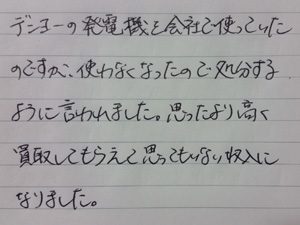 デンヨーの発電機を会社で使っていた
のですが、使わなくなったので処分する
ように言われました。思ったより高く
買取してもらえて思ってもいない収入に
なりました。